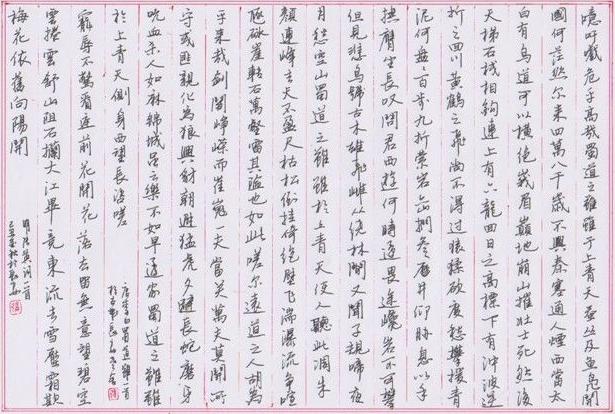 噫吁戲危乎高哉蜀道之難難於上青天蚕丛及鱼凫開
國何茫然尔来四萬八千歲不與秦塞通人煙西當太
白有鸟道可以横绝峨眉巔地崩山摧壮士死然後
天梯石栈相鉤連上有六龍回日之高標下有冲波逆
折之回川黄鹤之飛尚不得过猿猱欲度愁攀援青
泥何盘盘百步九折萦岩峦捫参歷井仰脅息以手
撫膺坐長嘆問君西遊何時還畏途巉岩不可攀
但見悲鸟號古木雄飛雌从绕林間又聞子規啼夜
月愁空山蜀道之難難於上青天使人聽此凋朱
顔連峰去天不盈尺枯松倒挂倚绝壁飞湍瀑流争喧
豗砯崖轉石萬壑雷其險也如此嗟尔遠道之人胡為
乎来哉剑閣崢嶸而崔嵬一夫當关萬夫莫開所
守或匪親化为狼與豺朝避猛虎夕避長蛇磨牙
吮血杀人如麻錦城虽云樂不如早还家蜀道之難難
於上青天側身西望長咨嗟
唐李白蜀道難一首
寵辱不驚看庭前花開花落去留無意望碧空
雲捲雲舒山阻石攔大江畢竟東流去雪壓霜欺
梅花依舊向陽開